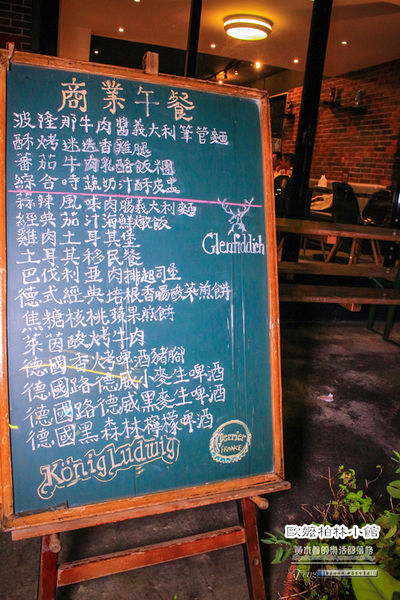 商業午餐
波隆那牛肉醬義大利筆管麵
酥烤迷迭香雞腿
番茄牛肉乳酪飯糰
綜合時蔬奶汁酥皮盅
蒜辣風味肉腸義大利麵
經典茄汁海鮮燉飯
雞肉土耳其堡
土耳其移民餐
巴伐利亞肉排起司堡
德式經典烤根香腸酸菜煎餅
焦糖核桃蘋果煎餅
萊茵酸烤牛肉
德國香烤啤酒豬腳
德國路德威小麥生啤酒
德國路德威黑麥生啤酒
德國黑森林檸檬啤酒
Glenfiddich
König Ludwig
Perrier
FRANCE
歐嬤柏林小館